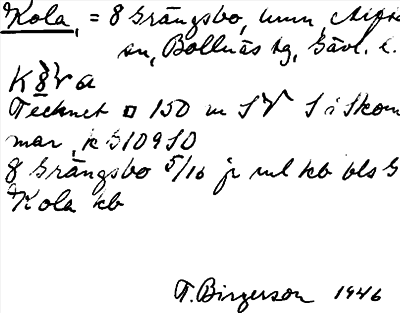 Kola, = 8 Grängsbo, hmn, Alfta
sn, Bollnäs tg, Gävl. l.
K 8 V a
Tecknet □ 150 m SV S i Skom
mar, k G109 SO
8 Grängsbo 5/16 jr ml kb bls G
Kola kb
T. Birgerson 1946